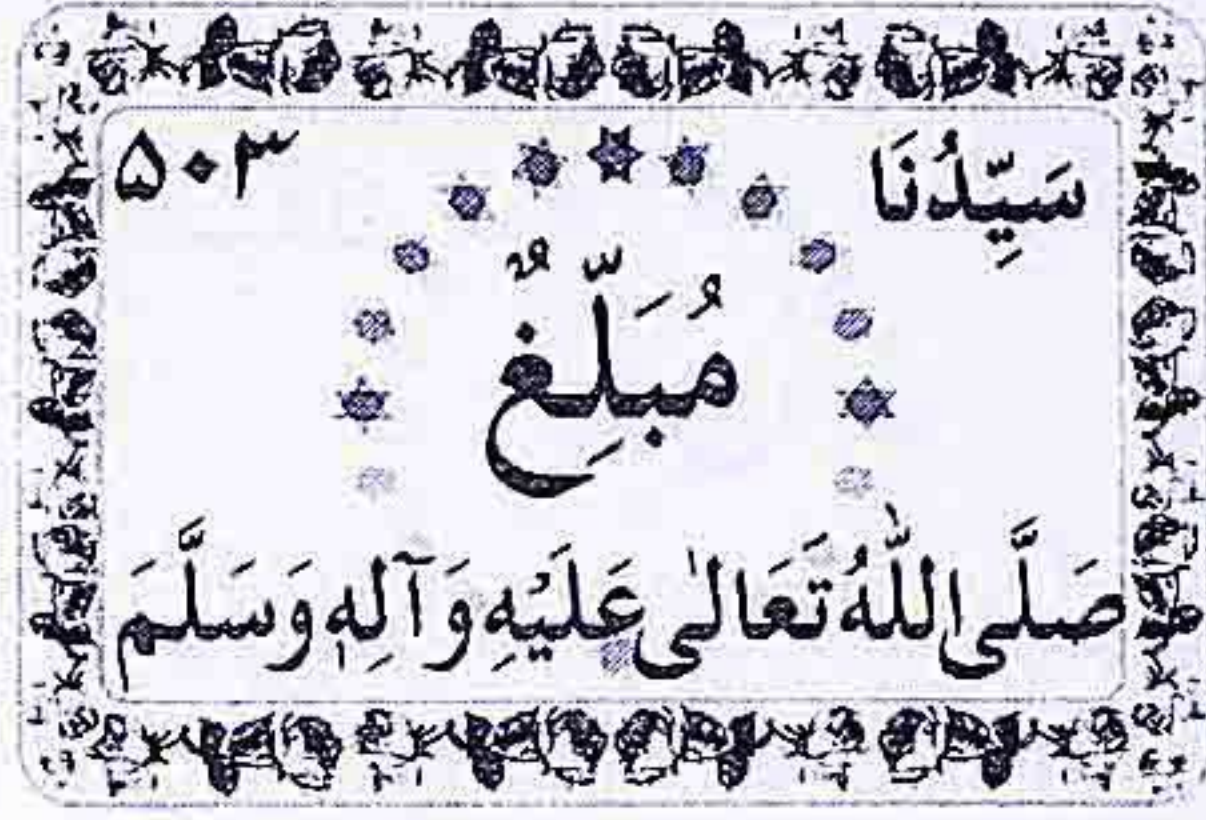 سَيِّدُنَا ۵۰۳
مُبَلِّغٌ
صَلَّى اللّٰهُ تَعَالٰى عَلَيْهِ وَآلِهٖ وَسَلَّمَ